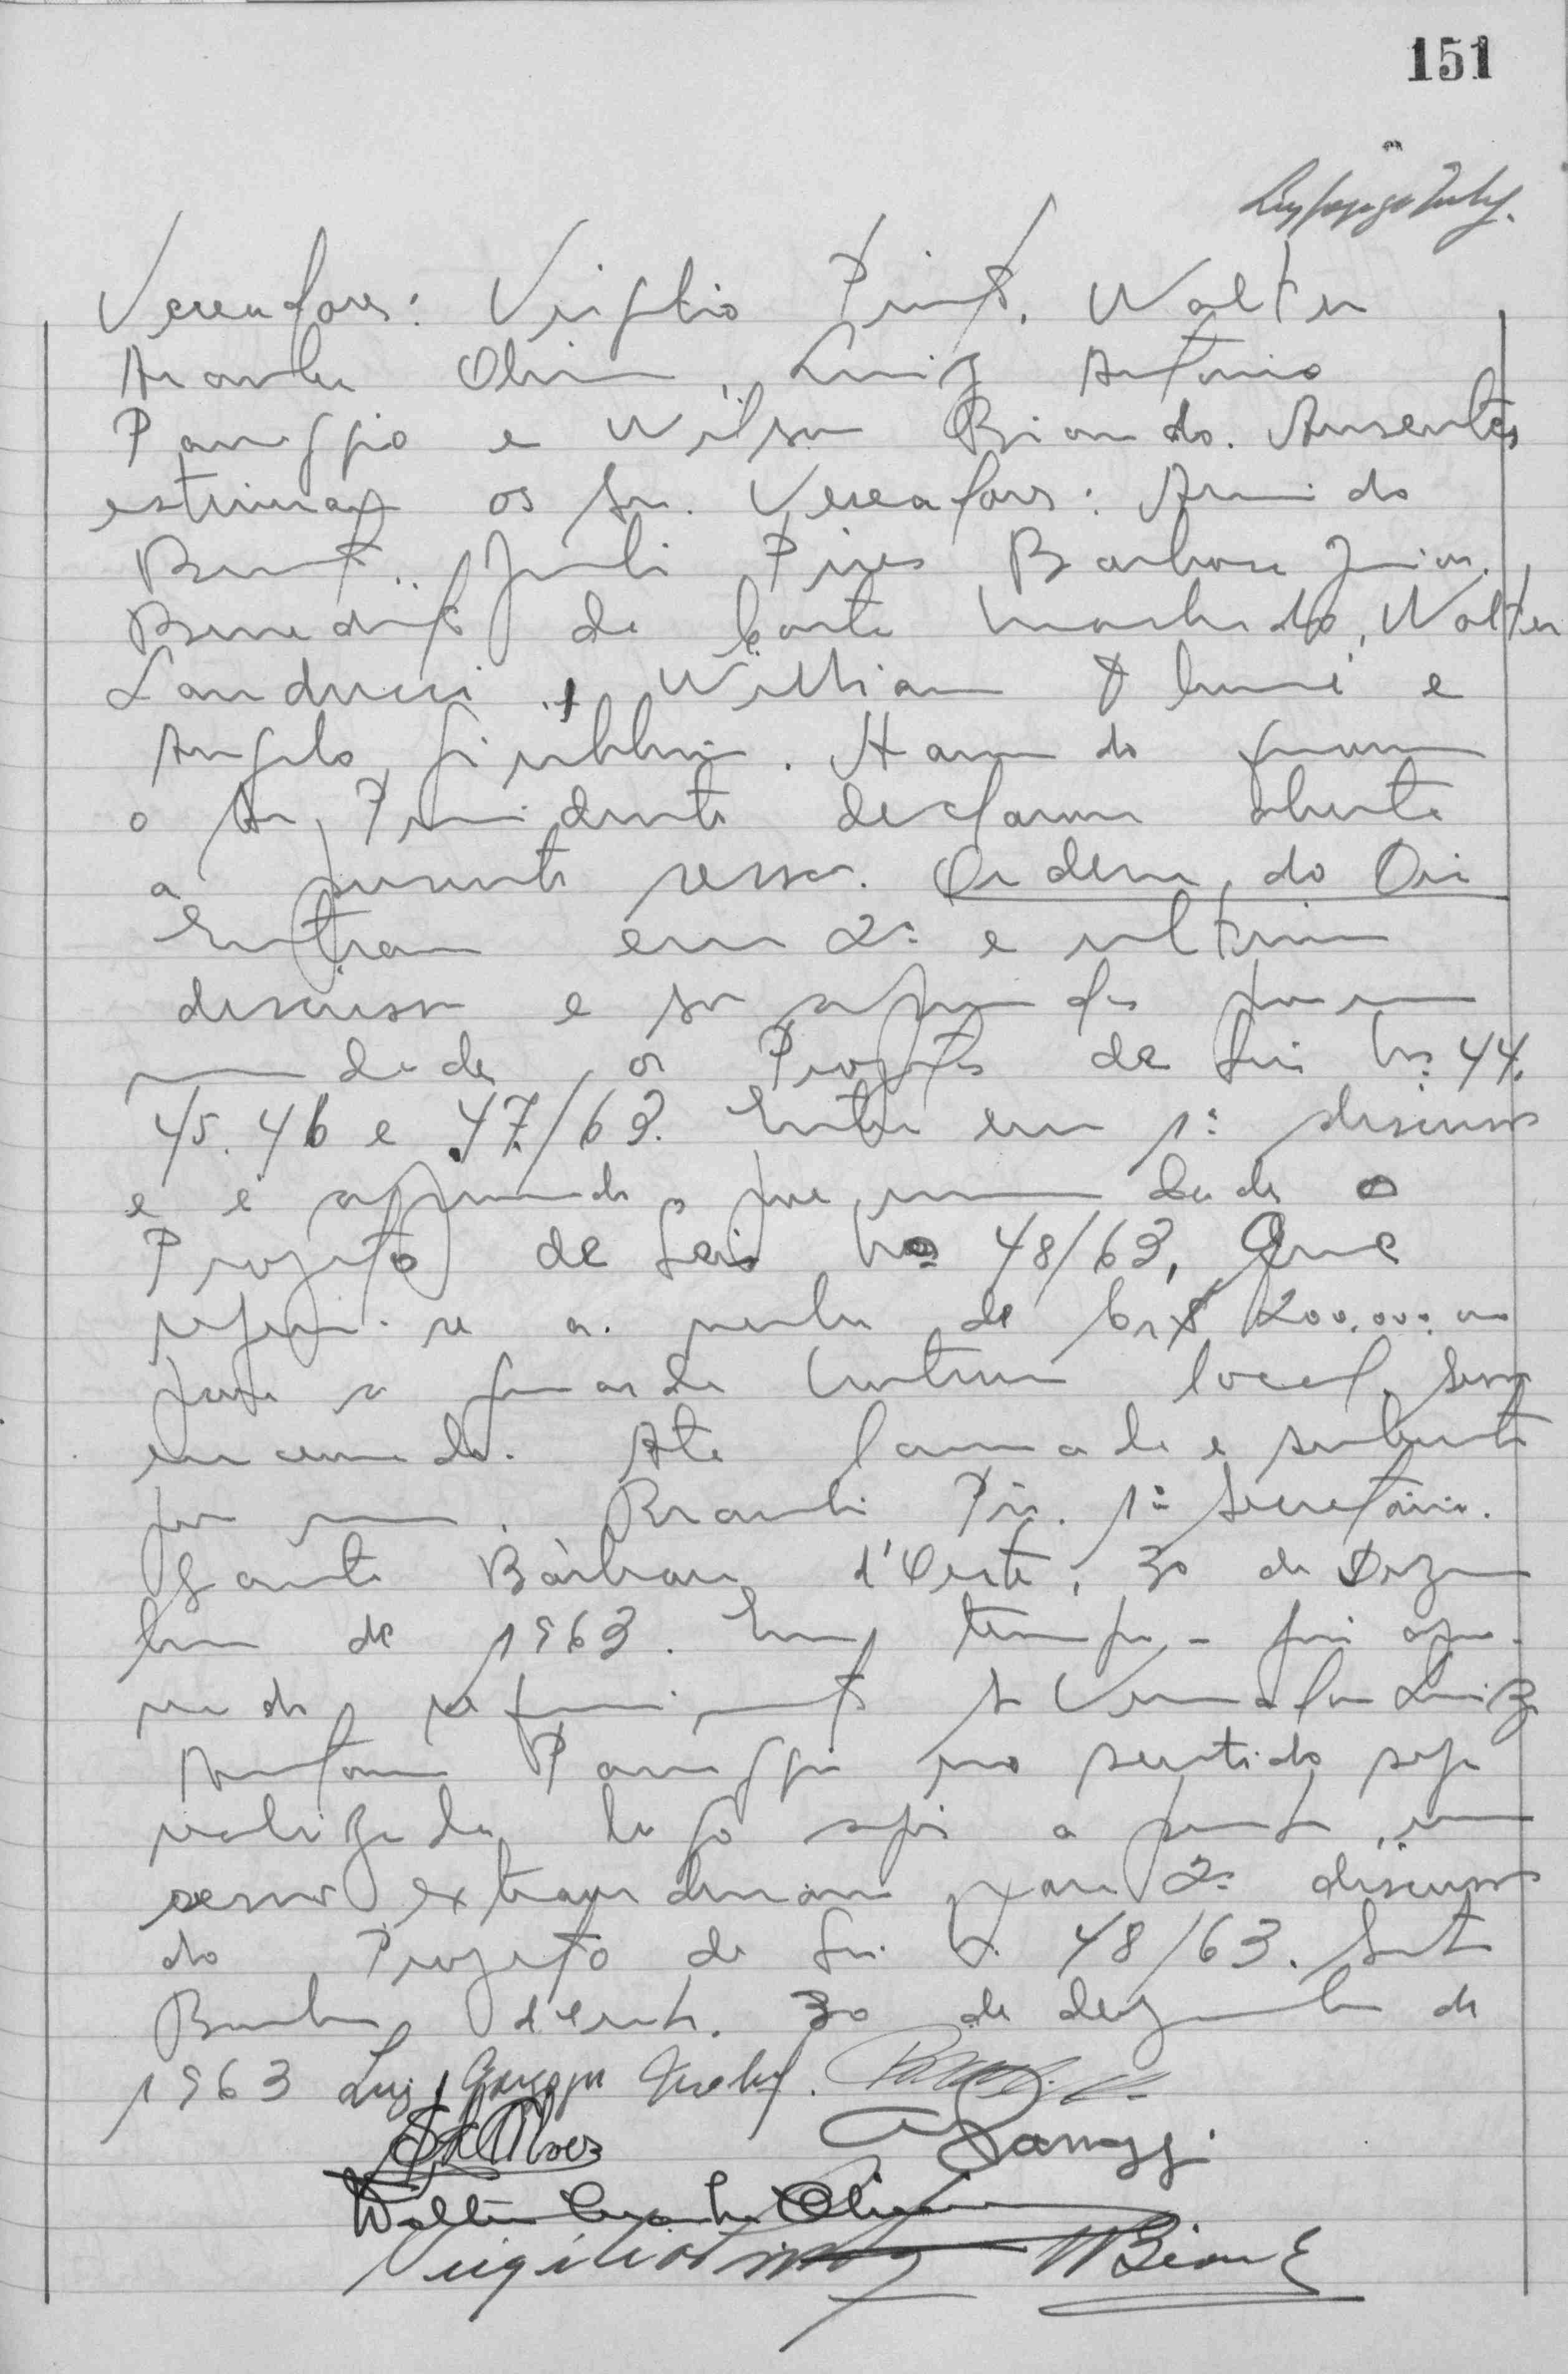 151
Vereadores: Virgilio Pinto, Walter
Aranha Oliveira, Luiz Antonio
Panaggio e Wilson Biondo. Ausentes
estiveram os Srs. Vereadores: Armindo
Pires Barbosa Junior,
Benedito de Costa Machado, Walter
Landucci, William e
Angelo Giubbina. Havendo numero
o Sr. Presidente declarou aberta
a presente sessão. Ordem do Dia
Entram em 2ª e ultima
discussão e são aprovados por una
nimidade os Projetos de Lei Nos 44,
45, 46 e 47/63. Entra em 1ª discussão
e é aprovado por unanimidade o
Projeto de Lei No 48/63, Que
refere-se a verba de Cr$ 200.000,00
para a guarda noturna local. Sessão
encerrada. Ata lavrada e subscrita
por mim. 1º Secretário.
Santa Bárbara d'Oeste, 30 de Dezem
bro de 1963. Em tempo - foi apro-
vado requerimento do Vereador Luiz
Antonio Panaggio no sentido seja
realizada logo após a presente, uma
sessão extraordinaria para 2ª discussão
do Projeto de Lei No 48/63. Santa
Barbara d'Oeste, 30 de dezembro de
1963
Panaggi
Walter Oliveira
Virgilio Pinto